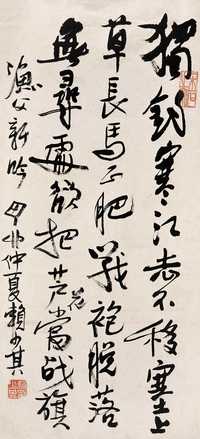 獨釣寒江赤不移塞上
草長馬正肥戰袍脫落
無尋處欲把芦花當战旗
漁父新吟 仲夏賴少其